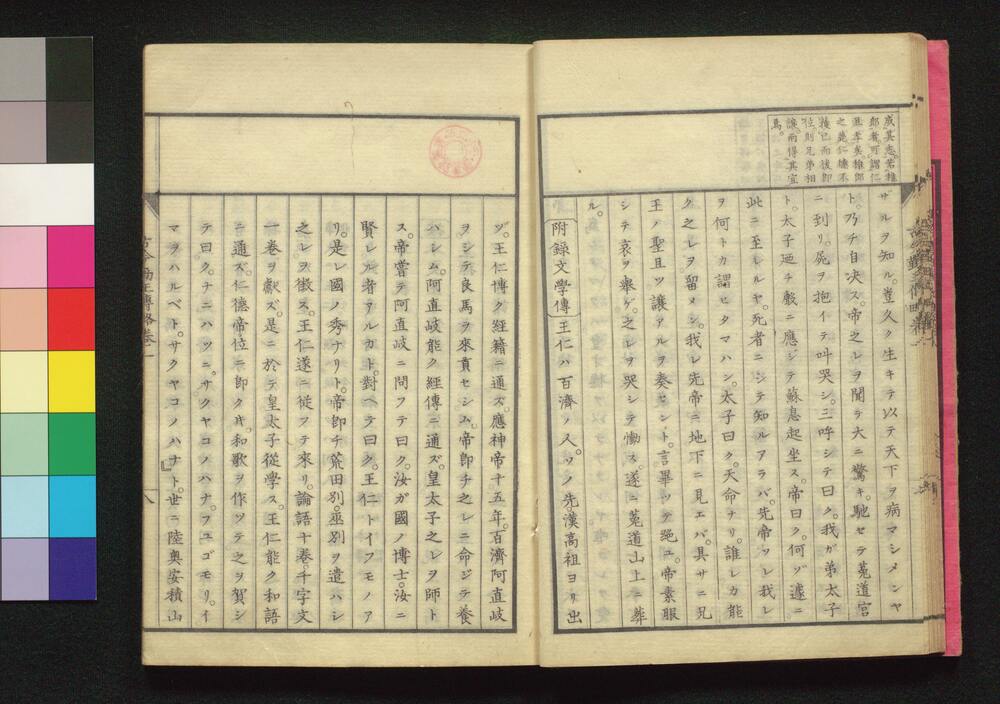 成其志若稚
郎者可謂仁
且孝矣稚郎
之薨仁德不
獲已而後即
位則兄弟相
讓而得其宜
焉。
ザルヲ知ル。豈久ク生キテ以テ天下ヲ病マシメンヤ
ト。乃チ自決ス。帝之レヲ聞テ大ニ驚キ。馳セテ菟道宮
ニ到リ。屍ヲ抱イテ叫哭シ。三呼シテ曰ク。我ガ弟太子
ト。太子廼チ欷ニ應ジテ蘇息起坐ス。帝曰ク。何ゾ遽ニ
此ニ至レルヤ。死者ニシテ知ルアラバ。先帝ソレ我レ
ヲ何トカ謂ヒタマハン。太子曰ク。天命ナリ。誰レカ能
ク之レヲ留メン。我レ先帝ニ地下ニ見エバ。具サニ兄
王ノ聖且ツ讓アルヲ奏セント。言畢ツテ絕ユ。帝素服
シテ哀ヲ擧ゲ。之レヲ哭シテ慟ス。遂ニ菟道山上ニ葬
ル。
附錄文學傳 王仁ハ百濟ノ人。ソノ先。漢高祖ヨリ出
ヅ。王仁博ク經籍ニ通ズ。應神帝十五年。百濟阿直岐
ヲシテ良馬ヲ來貢セシム。帝即チ之レニ命ジテ養
ハシム。阿直岐能ク經傳ニ通ズ。皇太子之レヲ師ト
ス。帝嘗テ阿直岐ニ問フテ曰ク。汝ガ國ノ博士。汝ニ
賢レル者アルカト。對ヘテ曰ク。王仁トイフモノア
リ。是レ國ノ秀ナリト。帝即チ荒田別。巫別ヲ遣ハシ
之レヲ徵ス。王仁遂ニ從フテ來リ。論語十卷。千字文
一卷ヲ獻ズ。是ニ於テ皇太子從學ス。王仁能ク和語
ニ通ズ。仁德帝位ニ即クヰ。和歌ヲ作ツテ之ヲ賀シ
テ曰ク。ナニハツニ。サクヤコノハナ。フユゴモリ。イ
マヲハルベト。サクヤコノハナト。』世ニ陸奧安積山
八